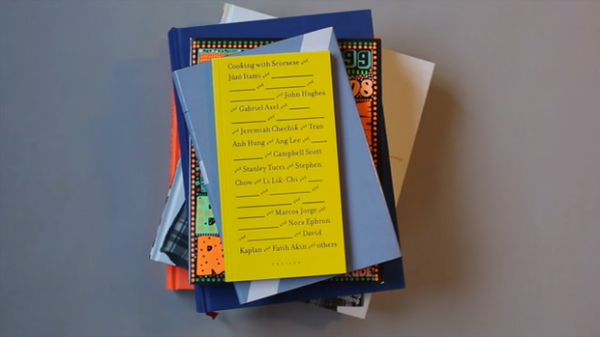 Cooking with Scorsese and
Jūzō Itami and
and and
and John Hughes
and Gabriel Axel and
and
and Jeremiah Chechik and Tran
Anh Hung and Ang Lee and
and Campbell Scott
and Stanley Tucci and Stephen
Chow and Li Lik-Chi and
and
and
and Marcos Jorge and
and Nora Ephron
and and David
Kaplan and Fatih Akin and others
99